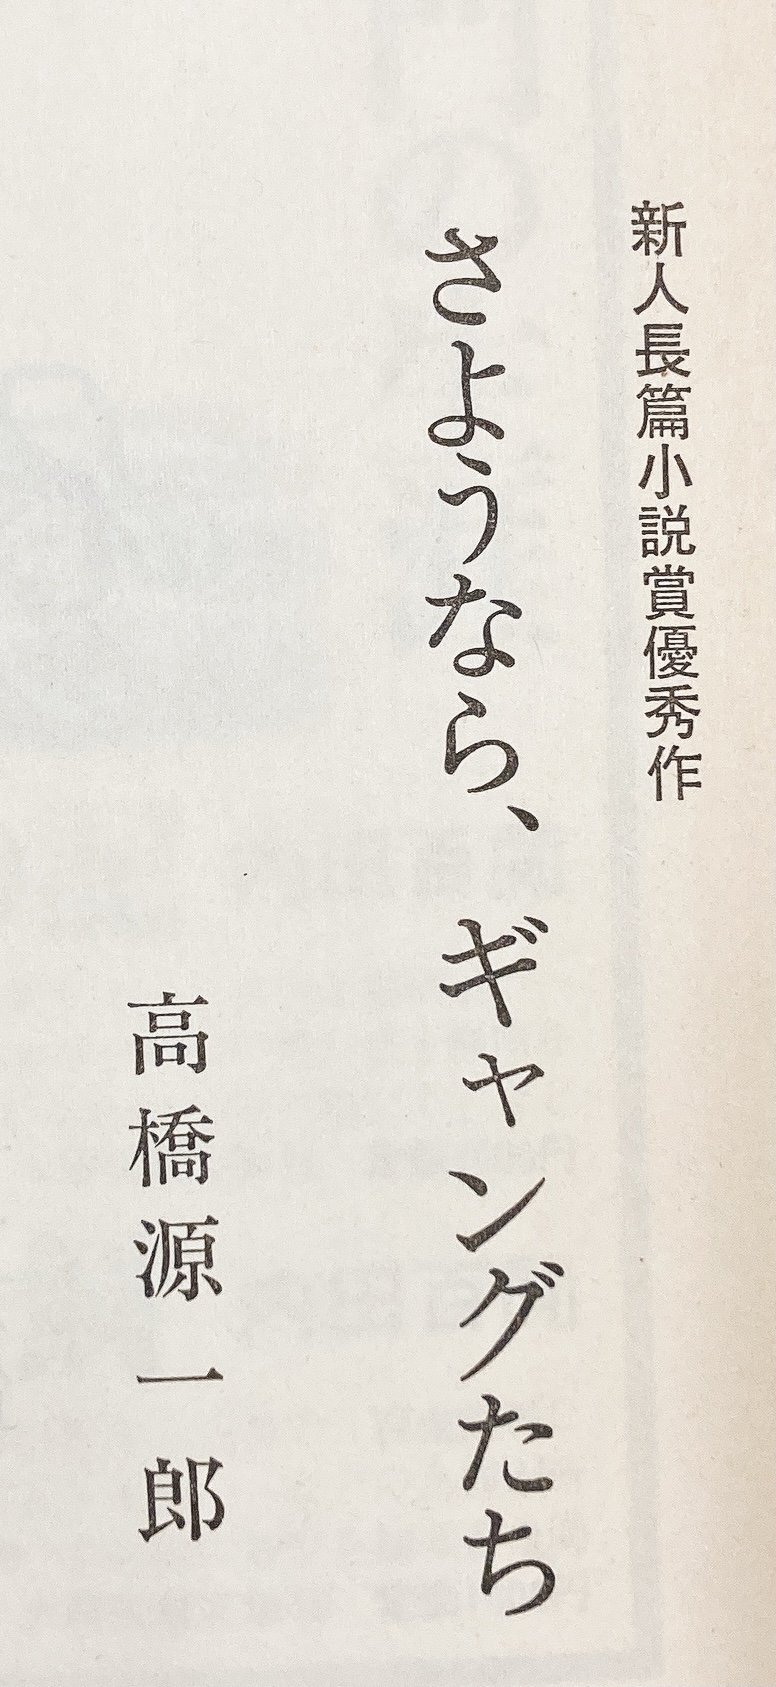 新人長篇小説賞優秀作
さようなら、ギャングたち
高橋源一郎